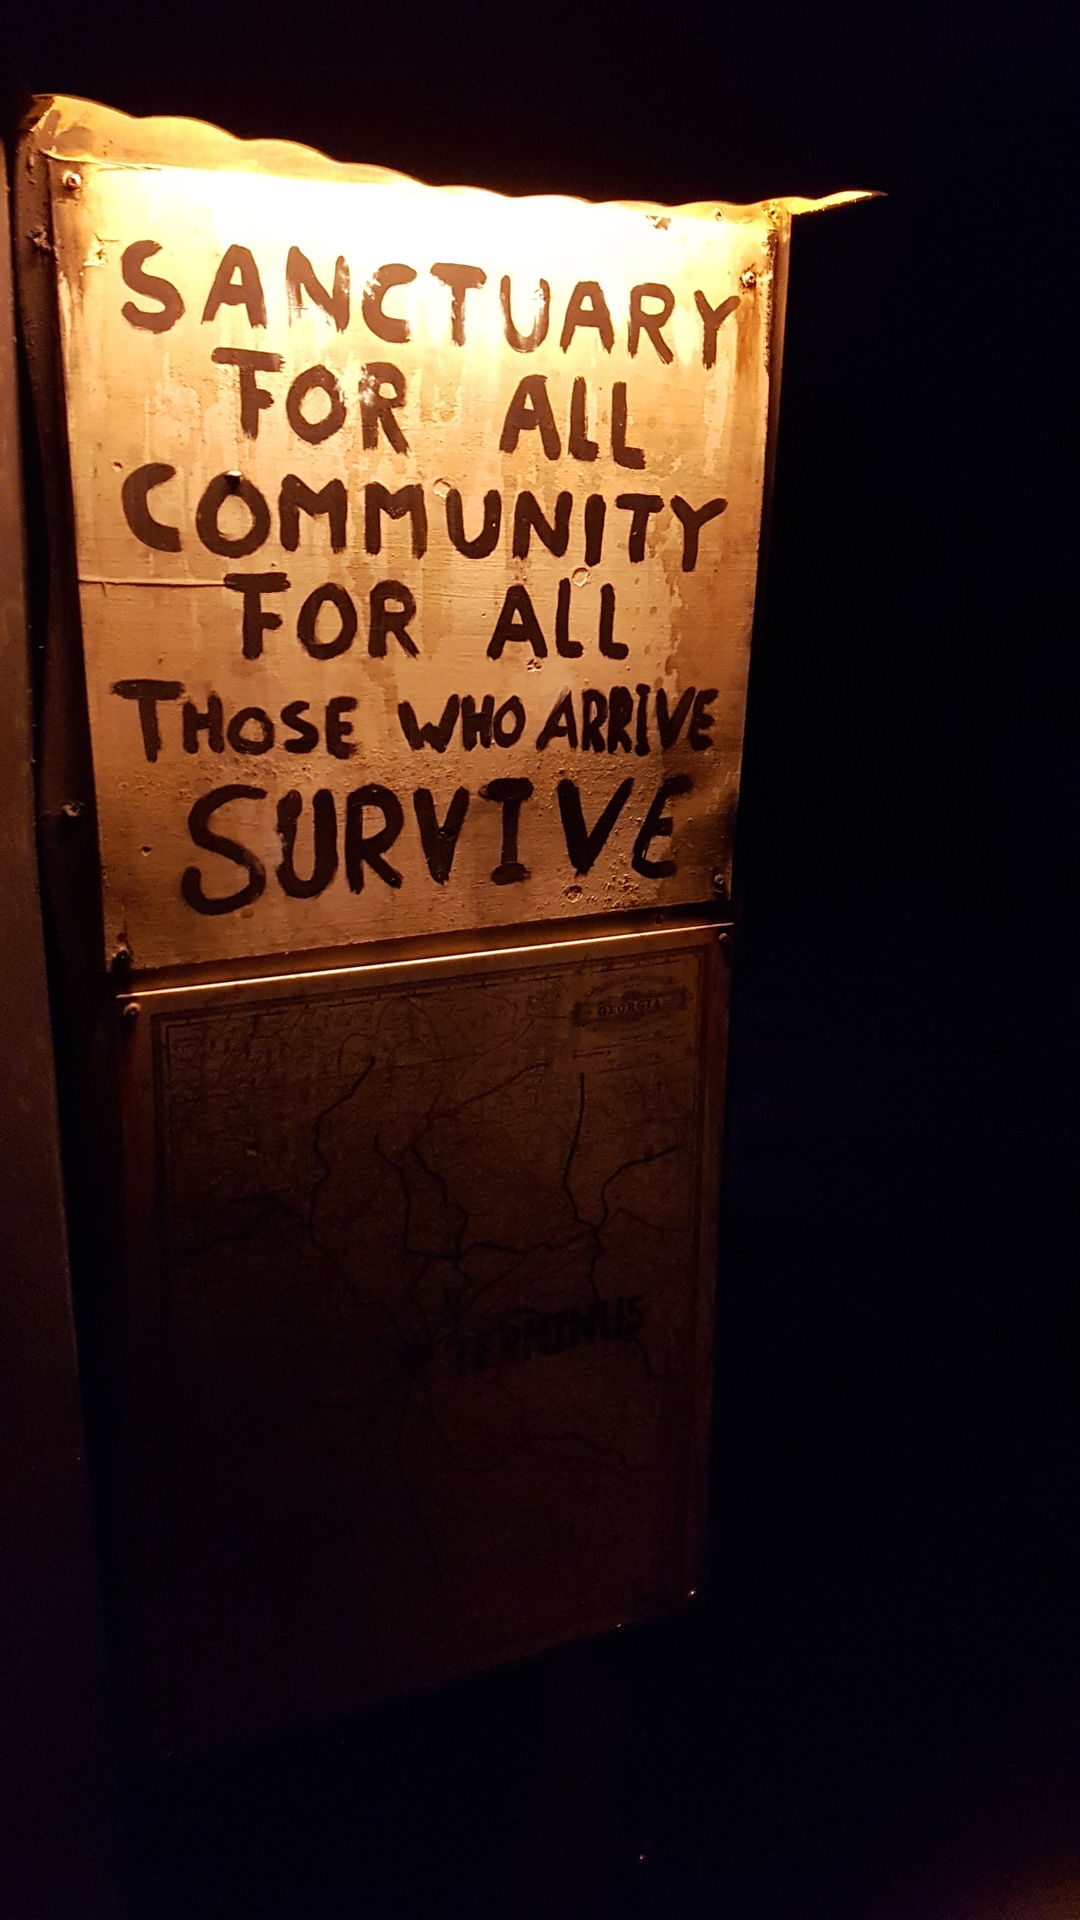 SANCTUARY
FOR ALL
COMMUNITY
FOR ALL
THOSE WHO ARRIVE
SURVIVE
GEORGIA
TERMINUS